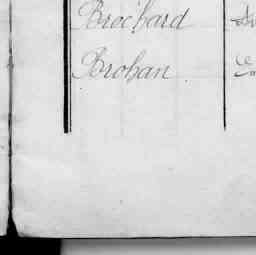 Brochard
Brohan